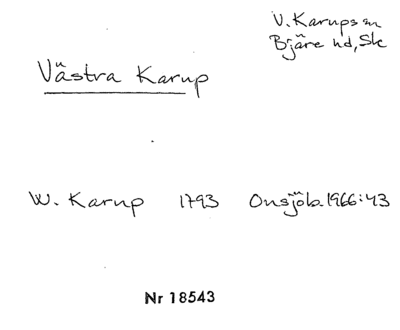 V. Karups sn
Bjäre hd, Sk
Västra Karup
W. Karup 1793 Onsjöb. 1966:43
Nr 18543